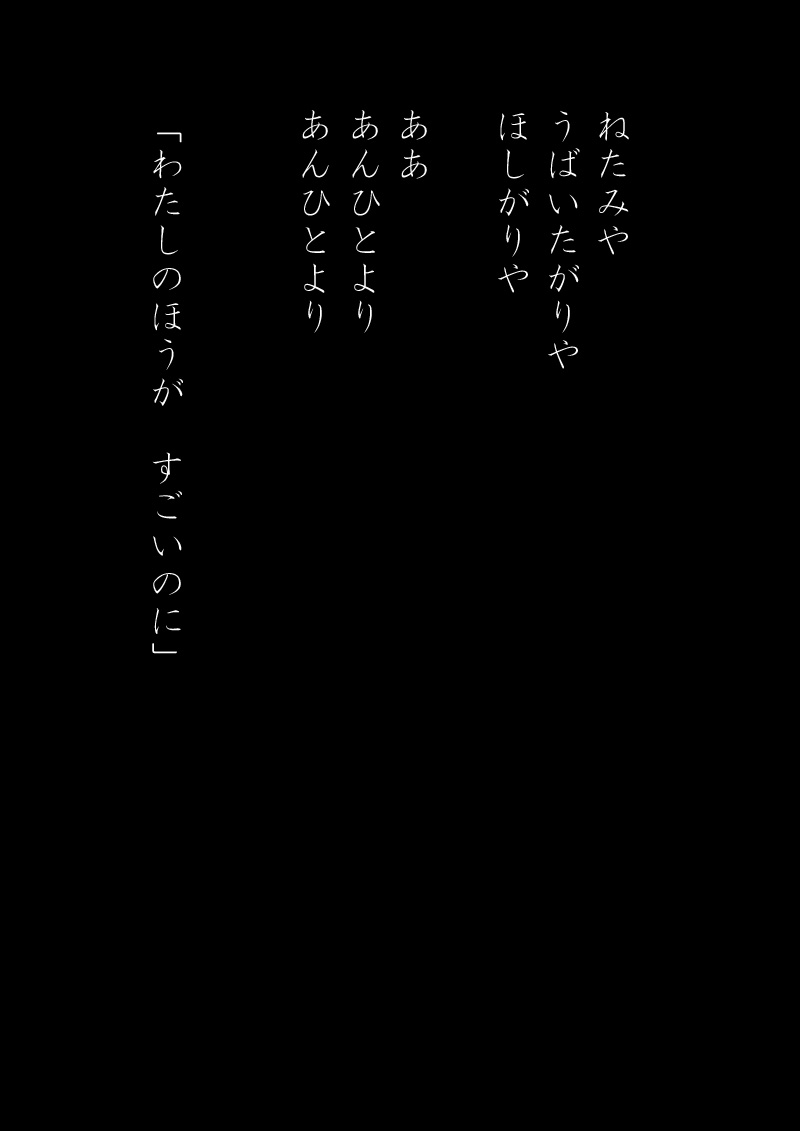 ねたみや
うばいたがりや
ほしがりや
ああ
あんひとより
あんひとより
「わたしのほうが　すごいのに」